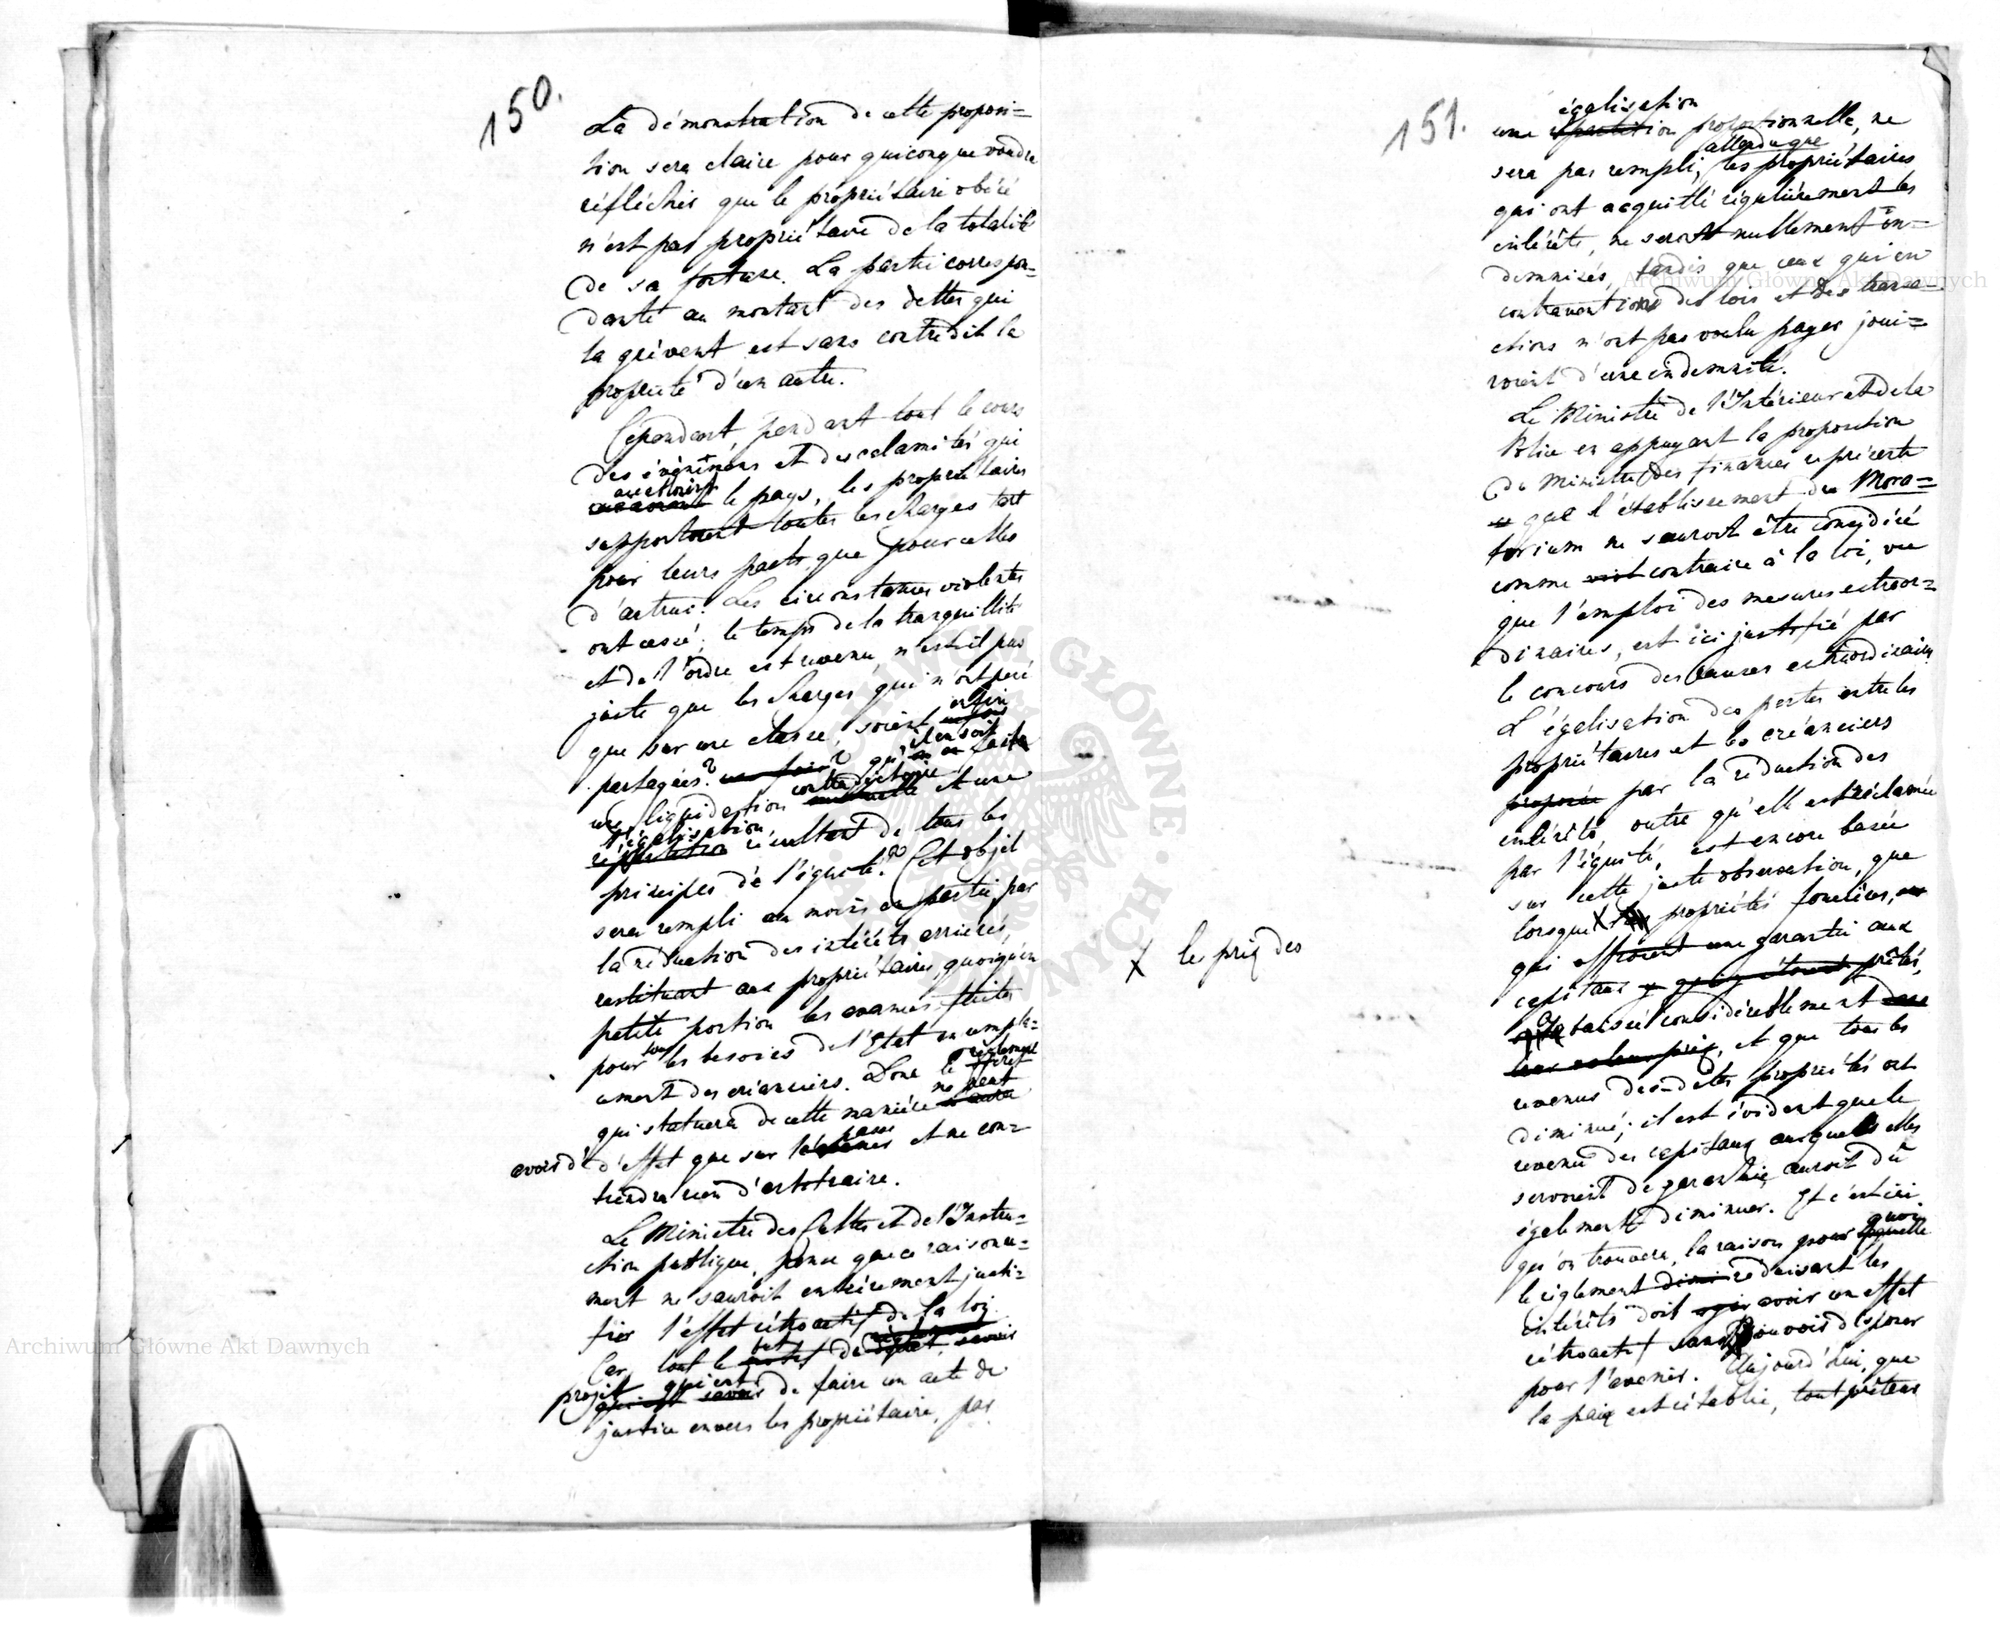 150.
La démonstration de cette proposi=
tion sera claire pour quiconque voudra
réfléchir que le propriétaire obéré
n'est pas propriétaire de la totalité
de sa fortune. La partie correspon=
dante au montant des dettes qui
la grèvent est sans contredit la
propriété d'un autre.
Cependant, pendant tout le cours
des évènemens et des calamités qui
le pays, les propriétaires
supportoient toutes les charges tant
pour leurs parts, que pour celles
d'autrui. Les circonstances violentes
ont cessé; le temps de la tranquillité
et de l'ordre est revenu, n'est-il pas
juste que les charges qui n'ont pesé
enfin
que sur une classe, soient
il en soit
partagées? qu' faite
contradictoire
une liquidation et une
égalisation
résultant de tous les
principes de l'équité? Cet objet
sera rempli au moins en partie, par
la réduction des intérêts arriérés,
restituant aux propriétaires, quoiqu'en
petite portion les avances faites
pour tous les besoins de l'Etat en rempla=
cement des créanciers. Donc le règlement
ne peut
qui statuera de cette manière
passé
avoir d'effet que sur le et ne con=
tiendra rien d'arbitraire.
Le Ministre des Cultes et de l'Instru=
ction publique, pense que ce raisonne=
ment ne sauroit entièrement justi=
fier l'effet rétroactif de la loi.
but
Car, tout le de
projet qui est de faire un acte de
justice envers les propriétaires, par
151.
égalisation
une proportionnelle, ne
attendu que
sera pas rempli, les propriétaires
qui ont acquitté régulièrement les
intérêts, ne seront nullement in=
demnisés, tandis que ceux qui en
contravention des lois et des transa=
ctions n'ont pas voulu payer joui=
roient d'une indemnité.
Le Ministre de l'Intérieur et de la
Police en appuyant la proposition
du Ministre des finances représente
que l'établissement du Mora=
torium ne sauroit être considéré
comme contraire à la loi, vu
que l'emploi des mesures extraor=
dinaires, est ici justifié par
le concours des causes extraordinaires.
L'égalisation des pertes entre les
propriétaires et les créanciers
par la réduction des
intérêts, outre qu'elle est réclamée
par l'équité, est encore basée
sur cette juste observation, que
lorsque X propriétés foncières,
qui offroient une garantie aux
X les prix des
capitaux prêtés,
a baissé considérablement
et que tous les
revenus des dites propriétés ont
diminué; il est évident que le
revenu des capitaux auxquels elles
servoient de garantie auroit dû
également diminuer. Et c'est ici
quoi
qu'on trouvera, la raison pour
le règlement réduisant les
intérêts doit avoir un effet
rétroactif sans pouvoir disposer
pour l'avenir. Aujourd'hui, que
la paix est rétablie, tout prêteur
Archiwum Główne Akt Dawnych
Archiwum Główne Akt Dawnych
ARCHIWUM GŁÓWNE AKT DAWNYCH